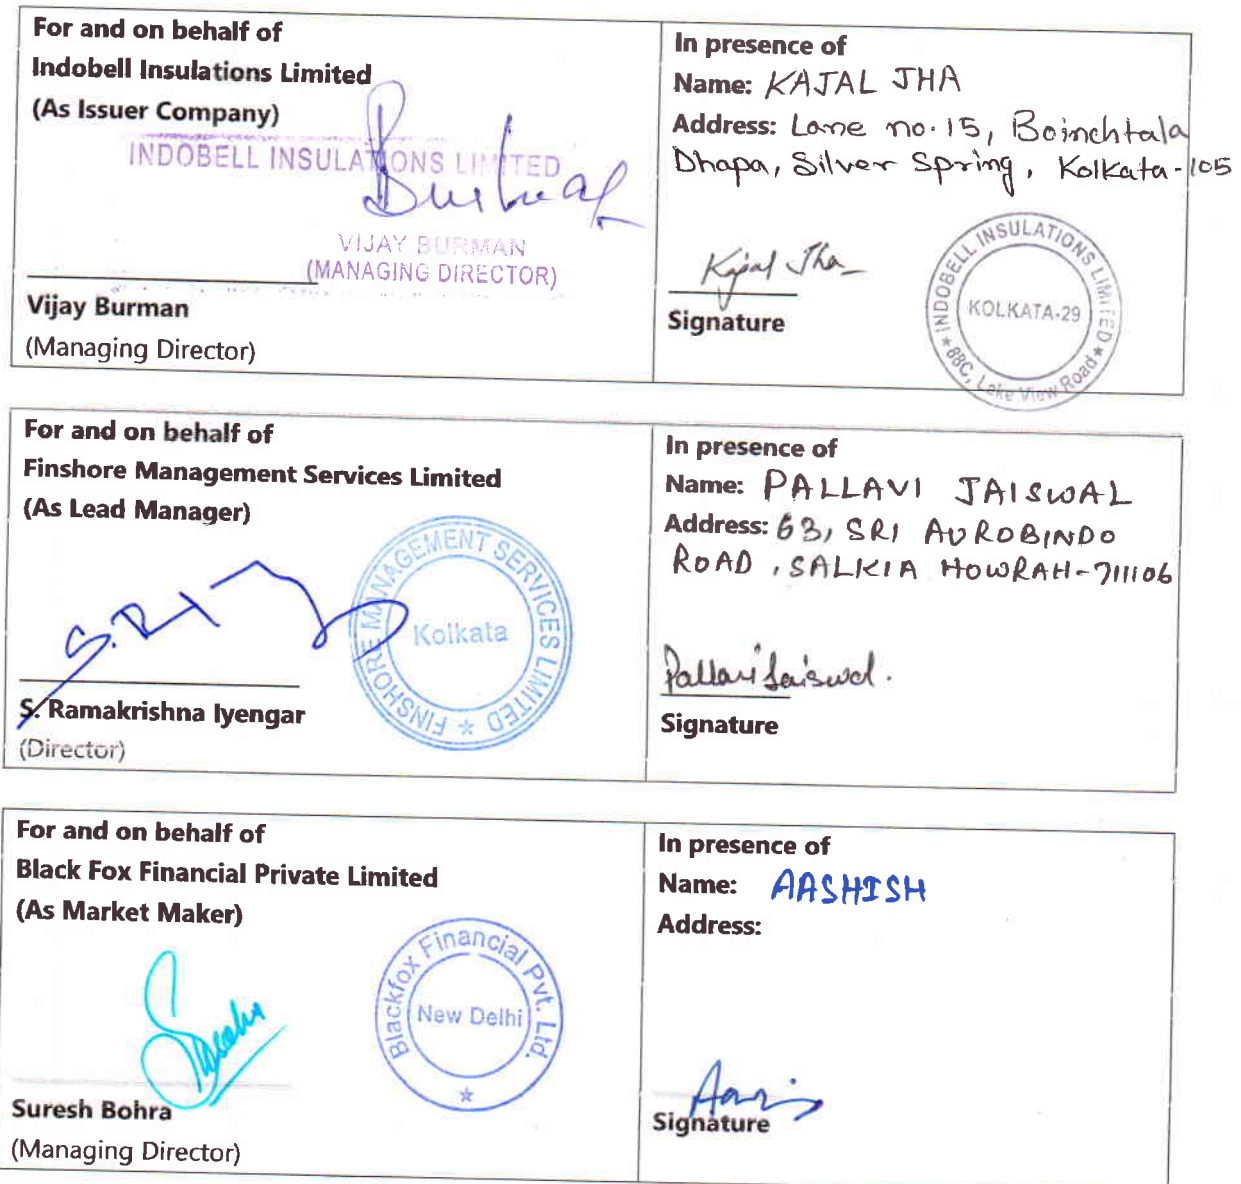 For and on behalf of
Indobell Insulations Limited
(As Issuer Company)
INDOBELL INSULATIONS LIMITED
Burman
VIJAY BURMAN
(MANAGING DIRECTOR)
Vijay Burman
(Managing Director)
In presence of
Name: KAJAL JHA
Address: Lane no. 15, Boinchtala
Dhapa, Silver Spring, Kolkata-105
Kajal Jha
Signature
INDOBELL INSULATIONS LIMITED
KOLKATA-29
★ 88C, Lake View Road ★
For and on behalf of
Finshore Management Services Limited
(As Lead Manager)
FINSHORE MANAGEMENT SERVICES LIMITED ★
Kolkata
S. Ramakrishna Iyengar
(Director)
In presence of
Name: PALLAVI JAISWAL
Address: 63, SRI AUROBINDO
ROAD, SALKIA HOWRAH-711106
Pallavi Jaiswal.
Signature
For and on behalf of
Black Fox Financial Private Limited
(As Market Maker)
Blackfox Financial Pvt. Ltd.
New Delhi
★
Suresh Bohra
(Managing Director)
In presence of
Name: AASHISH
Address:
Signature